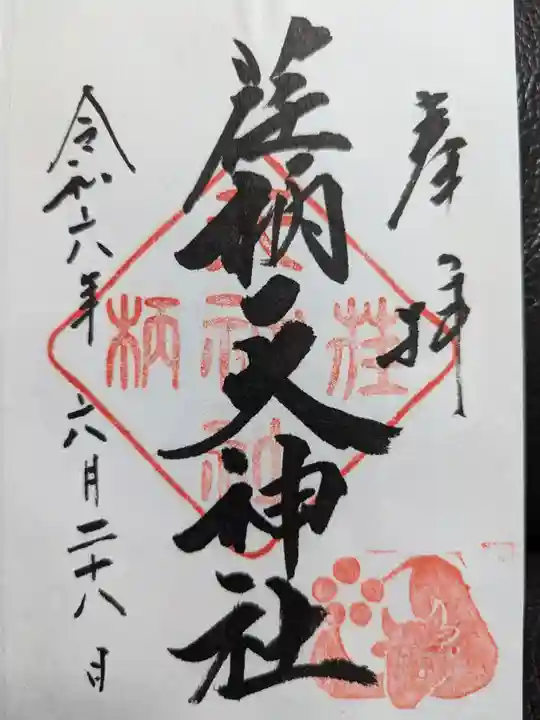 奉拝
荏柄天神社
令和六年 六月二十八日
荏
柄
神
社